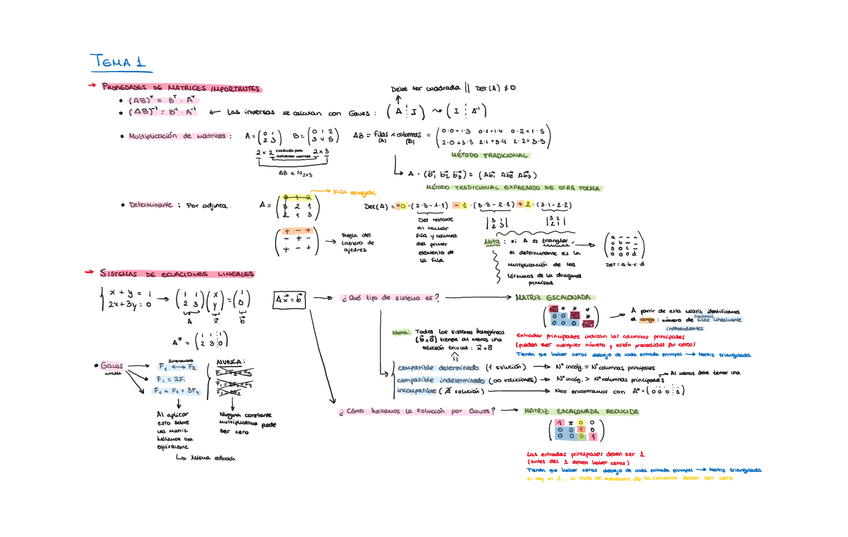 TEMA 1
→ PROPIEDADES DE MATRICES IMPORTANTES
• (AB)ᵀ = Bᵀ · Aᵀ
• (AB)⁻¹ = B⁻¹ · A⁻¹ ← Las inversas se calculan con Gauss: (A ⋮ I) ⇝ (I ⋮ A⁻¹)
Debe ser cuadrada || Det(A) ≠ 0
• Multiplicación de matrices: A = (0 1 / 2 3) B = (0 1 2 / 3 4 5) AB = filas (A) × columnas (B) = (0·0+1·3 0·1+1·4 0·2+1·5 / 2·0+3·3 2·1+3·4 2·2+3·5)
2 × 2 2 × 3
AB ∈ M₂ₓ₃
MÉTODO TRADICIONAL
A · (b₁ b₂ b₃) = (Ab₁ Ab₂ Ab₃)
MÉTODO TRADICIONAL EXPRESADO DE OTRA FORMA
• Determinante: Por adjuntos. A = (0 1 2 / 3 2 1 / 2 1 3) → Fila escogida
Det(A) = +0 · (2·3-1·1) - 1 · (3·3-2·1) + 2 · (3·1-2·2)
(+ - + / - + - / + - +) → Regla del tablero de ajedrez
Det restante al tachar fila y columna del primer elemento de la fila
|3 1 / 2 3| |3 2 / 2 1|
Nota: si A es triangular, el determinante es la multiplicación de los términos de la diagonal principal
DET = a·b·c·d
→ SISTEMAS DE ECUACIONES LINEALES
{x + y = 1 / 2x + 3y = 0 → (1 1 / 2 3)(x / y) = (1 / 0)
A x b
A* = (1 1 1 / 2 3 0)
Ax = b
→ ¿Qué tipo de sistema es? → MATRIZ ESCALONADA
→ A partir de esta matriz identificamos el rango: número de filas linealmente independientes
Nota: Todos los sistemas homogéneos (b = 0) tienen al menos una solución trivial: x = 0
Entradas principales indican las columnas principales
(pueden ser cualquier número y están precedidas por ceros)
Tienen que haber ceros debajo de cada entrada principal → Matriz triangulada
compatible determinado (1 solución) → Nº incóg. = Nº columnas principales
compatible indeterminado (∞ soluciones) → Nº incóg. > Nº columnas principales
incompatible (∄ solución) → Nos encontramos con A* = (0 0 0 ⋮ a) → Al menos debe tener una
• Gauss
F₁ ↔ F₂
F₁ = 2F₁
F₂ = F₂ + 3F₁
NUNCA:
Al aplicar esto sobre una matriz hallamos una equivalente
↳ Misma solución
Ninguna constante multiplicativa puede ser cero
→ ¿Cómo hallamos la solución por Gauss? → MATRIZ ESCALONADA REDUCIDA
(1 * 0 0 / 0 0 1 0 / 0 0 0 1)
Las entradas principales deben ser 1
(antes del 1 deben haber ceros)
Tienen que haber ceros debajo de cada entrada principal → Matriz triangulada
Si hay un 1, el resto de números de la columna deben ser cero